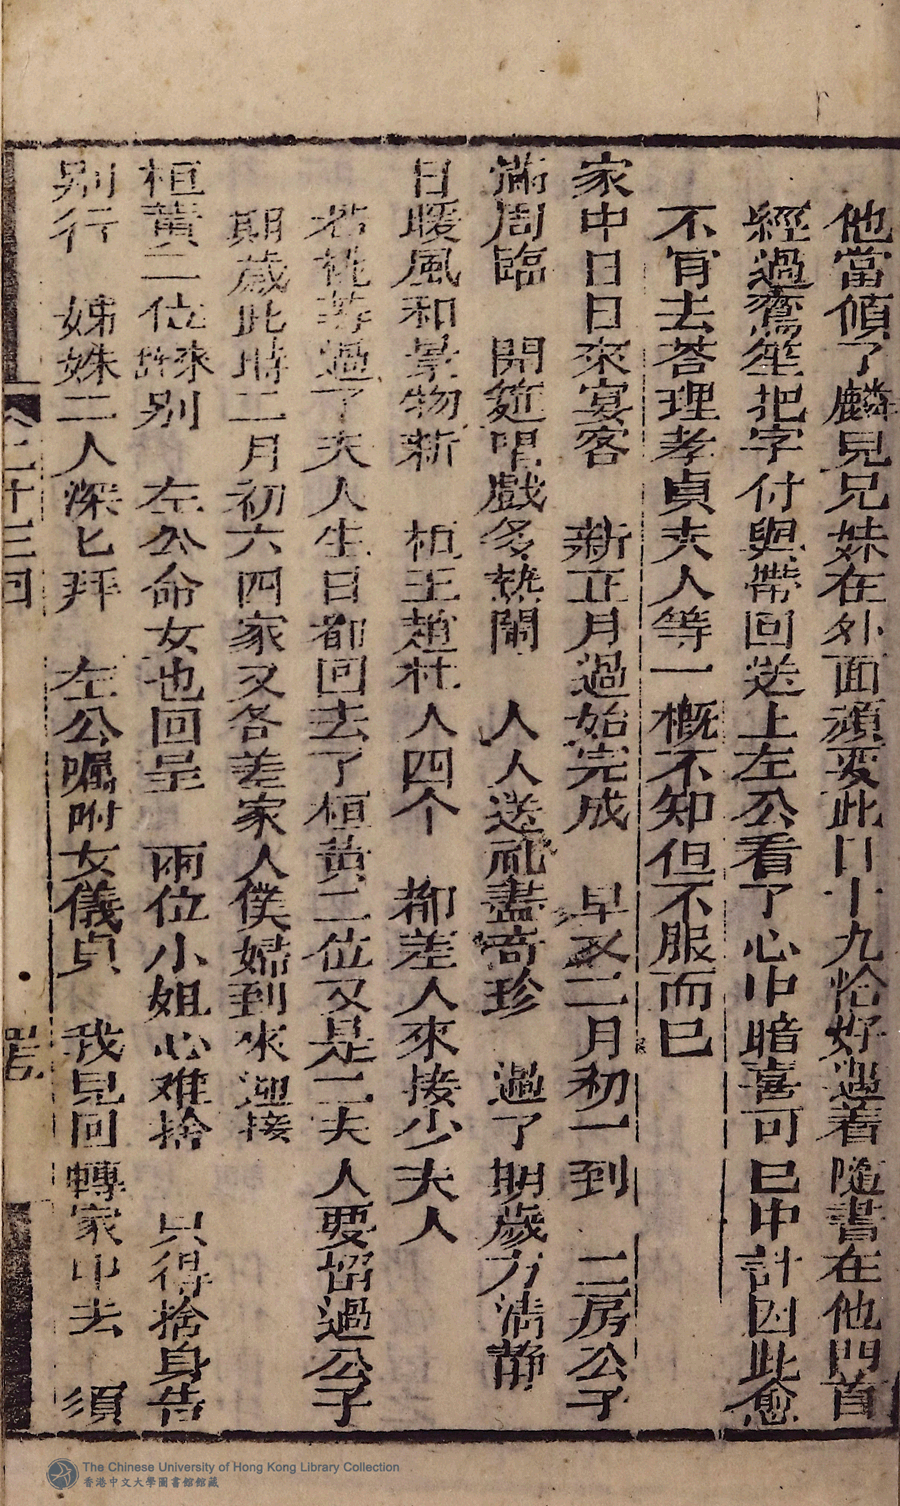 他當傾了麟兒兄妹在外面頑耍此日十九恰好遇着隨書在他門首
經過鴛笙把字付與帶回送上左公看了心中暗喜可巳中計因此愈
不肯去荅理孝貞夫人等一概不知但不服而巳
家中日日來宴客　新正月過始完成　早又二月初一到　二房公子
滿周臨　開筵唱戲多熱鬧　人人送礼盡奇珍　過了期歲方清静
日暖風和景物新　桓王趙杜人四个　都差人來接少夫人
若挑等過了夫人生日都回去了桓黄二位又是二夫人要留過公子
期歲此時二月初六四家又各差家人僕婦到來迎接
桓黄二位許來别　左公命女也回呈　兩位小姐心难捨　只得捨身告
别行　姊妹二人深匕拜　左公嘱咐女儀貞　我見回轉家中去　須
二十三回
The Chinese University of Hong Kong Library Collection
香港中文大學圖書館館藏